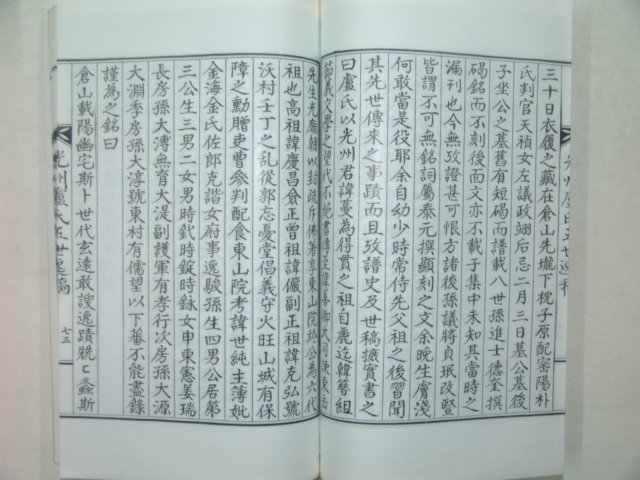 三十日衣履之藏在倉山先壠下枕子原配密陽朴
氏判官天禎女左議政翊后忌二月三日墓公墓後
子坐公之墓舊有短碣而譜載八世孫進士德奎撰
碣銘而不刻後面文亦不載于集中未知其當時之
漏刊也今無攷證甚可恨方諸後孫議將貞珉改竪
皆謂不可無銘詞屬泰元撰顯刻之文余晚生膚淺
何敢當是役耶余自幼少時常侍先父祖之後習聞
其先世傳來之事蹟而且攷譜史及世稿摭實書之
曰盧氏以光州君諱蔓為得貫之祖自鹿迄韓簪組
節義文學之望代不絶書傳至諱善卿大司諫東岳
先生光廟朝以封疏斥佛著享東山院於公為六代
祖也高祖諱慶昌僉正曾祖諱儼副正祖諱克弘號
沃村壬丁之亂從郭忘憂堂倡義守火旺山城有保
障之勳贈吏曹參判配食東山院考諱世純主簿妣
金海金氏佐郎克諧女府事逸駿孫生四男公居第
三公生三男二女男時釴時錠時銶女申東憲姜瑞
長房孫大溥無育大湜副護軍有孝行次房孫大源
大淵季房孫大淳號東村有儒望以下蕃不能盡錄
謹為之銘曰
倉山載陽幽宅斯卜世代玄遠敢謏逸蹟兟兟螽斯
光州盧氏五世逸稿
七三